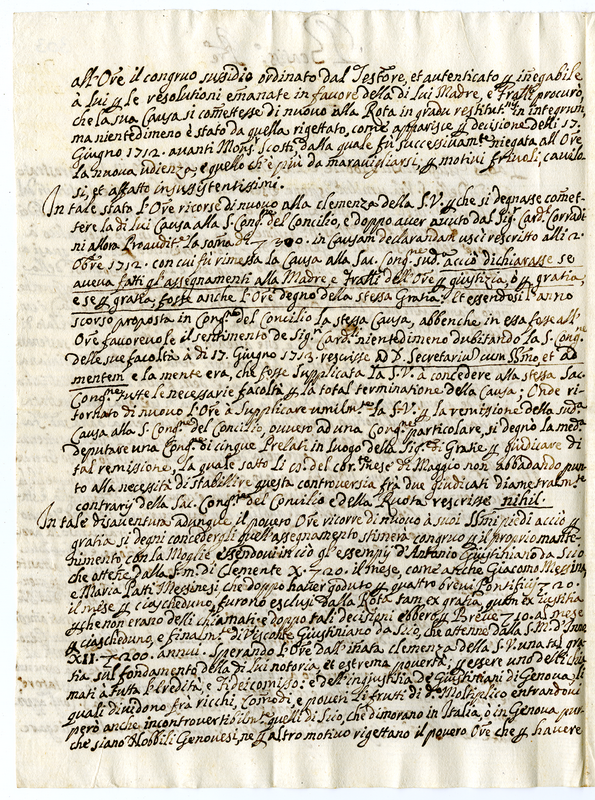 all'Ore il congruo susidio ordinato dal Testore, et autenticato ꝑ inegabile
à lui ꝑ le resolutioni emanate in favore della di lui Madre, e fratelli procurò,
che la sua Causa si comettesse di nuovo alla Rota in gradu restitut.nis in integrum,
ma nientedimeno è stato da quella rigettato, come apparisce ꝑ decisione delli 17.
Giugno 1712. avanti Mons. Scotti, dalla quale fù successivam.te niegata all'Ore
la nuova udienza, e quello ch'è più da maravigliarsi, ꝑ motivi frivoli, cavilo
si, et affatto insussistentissimi.
In tale stato l'Ore ricorse di nuovo alla clemenza della S.V. ꝑ che si degnasse comet-
tere la di lui Causa alla S. Cong.ne del Concilio, e doppo aver avuto dal Sig. Card. Corradi-
ni allora Pro Audit.re la soma di 300. in Causam declarandam uscì rescritto alli 2.
8bre 1712. con cui fù rimessa la Causa alla Sac. Cong.ne sud.a acciò dichiarasse se
aveva fatti gl'assegnamenti alla Madre, e fratelli dell'Ore ꝑ giustizia, ò ꝑ gratia,
e se ꝑ gratia, fosse anche l'Ore degno della stessa Gratia. Et essendosi l'anno
scorso proposta in Cong.ne del Concilio la stessa Causa, abbenche in essa fosse all'
Ore favorevole il sentimento de Sig.ri Card.li nientedimeno dubitando la S. Cong.ne
delle sue facoltà à di 17. Giugno 1713. rescrisse ad D. Secretarium cum SSmo, et ad
mentem e la mente era, che fosse supplicata la S.V. à concedere alla stessa Sac.
Cong.ne tutte le necessarie facoltà ꝑ la total terminatione della Causa; Onde ri-
tornato di nuovo l'Ore à supplicare umilm.te la S.V. ꝑ la remissione della sud.a
Causa alla S. Cong.ne del Concilio, ovvero ad una Cong.ne particolare, si degnò la med.ma
deputare una Cong.ne di cinque Prelati in luogo della Sig.ra di Gratie ꝑ giudicare di
tal remissione, la quale sotto li del mese di Maggio non abbadando pun-
to alla necessità di stabilire questa controversia frà due giudicati diametralm.te
contrarij della Sac. Cong.ne del Concilio e della Ruota rescrisse nihil.
In tale disaventura adunque il povero Ore ricorre di nuovo à suoi SSmi piedi acciò ꝑ
gratia si degni concedergli quell'assegnamento stimerà congruo ꝑ il proprio mante-
nimento con la Moglie essendovi in ciò gl'essempij d'Antonio Giustiniano da Scio
che ottene dalla S.m. di Clemente X. 20. il mese, come anche Giacomo Messina,
e Maria Patti Messinesi che doppo haver goduto ꝑ quattro brevi Pontificij 20.
il mese ꝑ ciascheduno, furono esclusi dalla Rota tam ex gratia, quam ex iustitia
ꝑ che non erano delli chiamati, e doppo tali decisioni ebbero ꝑ Breve 10. al mese
ꝑ ciascheduno, e finalm.te di Visconte Giustiniano da Scio, che ottenne dalla S.M. d'Innoc.
XII. 200. annui. Sperando l'Ore dall'inata clemenza della S.V. una tal gra-
tia sul fondamento della di lui notoria, et estrema povertà, ꝑ essere uno delli chia-
mati à tutta l'eredità, e Fideicomisso: e dell'ingiustitia de Giustiniani di Genova, li
quali dividono frà ricchi, Comodi, e poveri li frutti di d.o Moltiplico entrandovi
però anche incontrovertibilm.te quelli di Scio, che dimorano in Italia, ò in Genova pur
che siano Nobbili Genovesi, ne ꝑ altro motivo rigettano il povero Ore che ꝑ havere